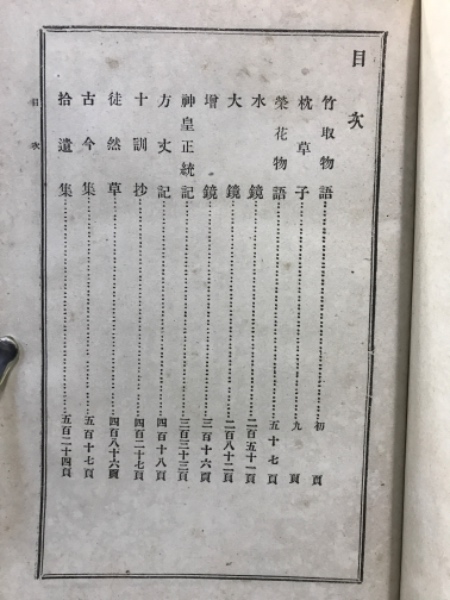 目次
竹取物語……初頁
枕草子……九頁
榮花物語……五十七頁
水鏡……二百五十一頁
大鏡……二百八十二頁
增鏡……三百十六頁
神皇正統記……三百三十三頁
方丈記……四百十八頁
十訓抄……四百二十七頁
徒然草……四百八十六頁
古今集……五百十七頁
拾遺集……五百二十四頁
目次